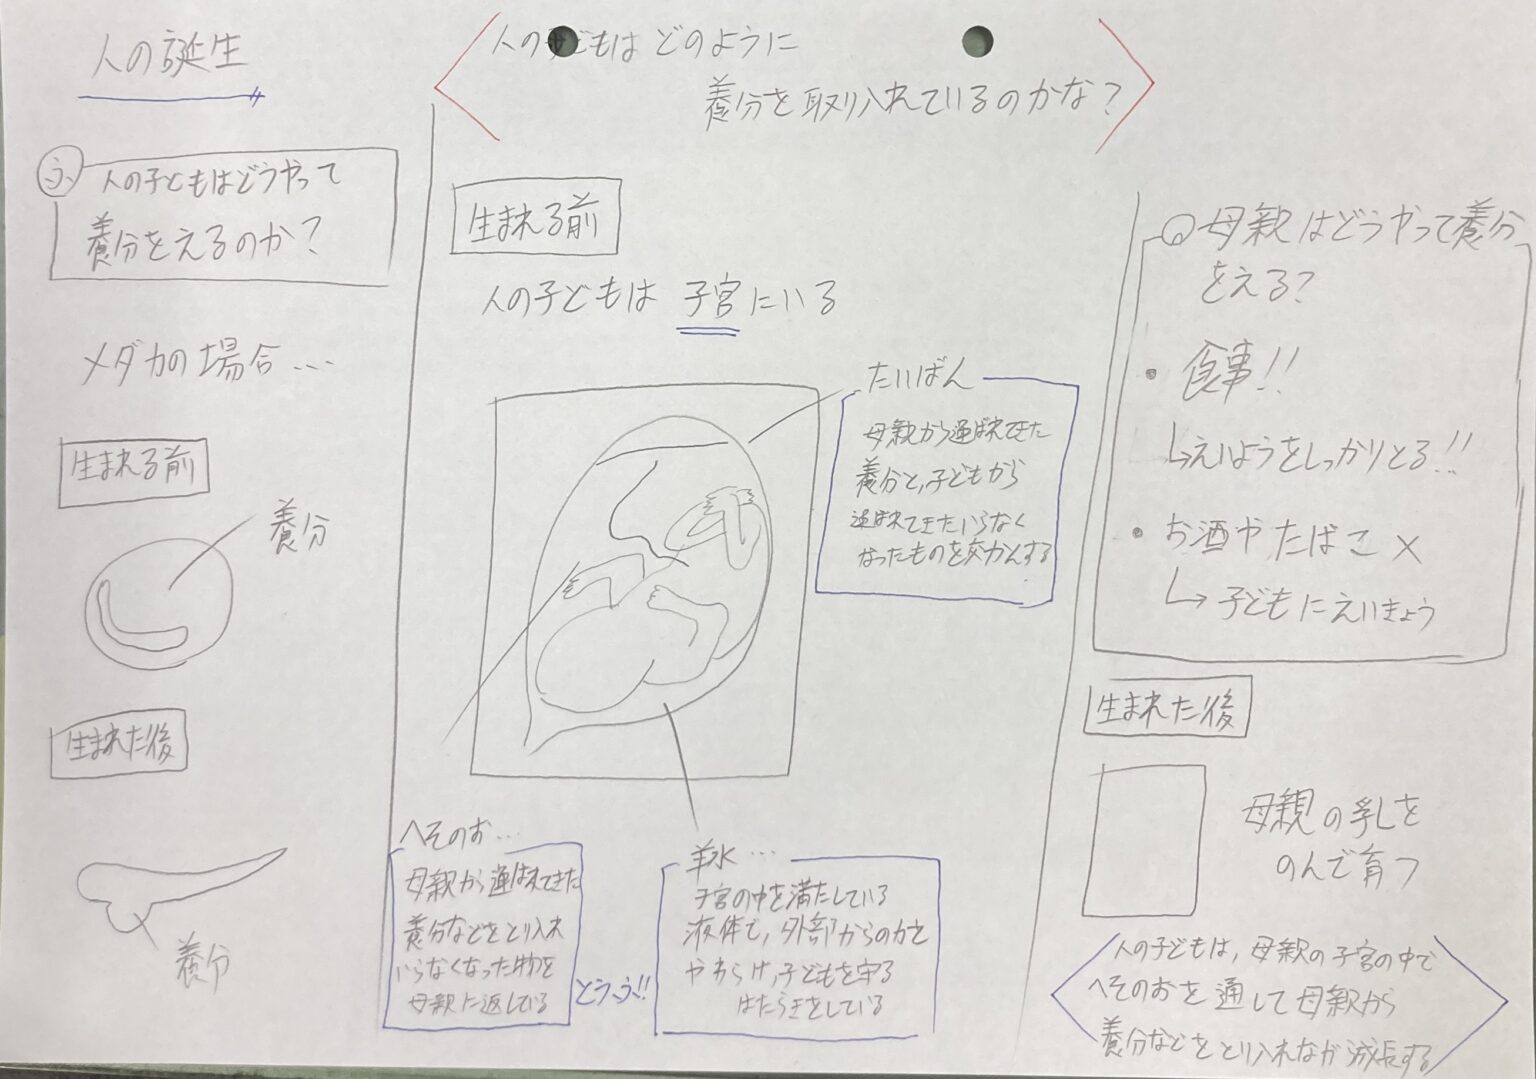 人の誕生
ふ 人の子どもはどうやって
養分をえるのか?
メダカの場合…
生まれる前
養分
生まれた後
養分
人の子どもは どのように
養分を取り入れているのかな?
生まれる前
人の子どもは 子宮にいる
たいばん
母親から運ばれてきた
養分と、子どもから
運ばれてきたいらなく
なったものを交かんする
へそのお…
母親から運ばれてきた
養分などをとり入れ
いらなくなった物を
母親に返している
とうふ!!
羊水…
子宮の中を満たしている
液体で、外部からの力を
やわらげ、子どもを守る
はたらきをしている
母親はどうやって養分
をえる?
・食事!!
↳えいようをしっかりとる!!
・お酒やたばこ×
↳子どもにえいきょう
生まれた後
母親の乳を
のんで育つ
人の子どもは、母親の子宮の中で
へそのおを通して母親から
養分などをとり入れながら成長する